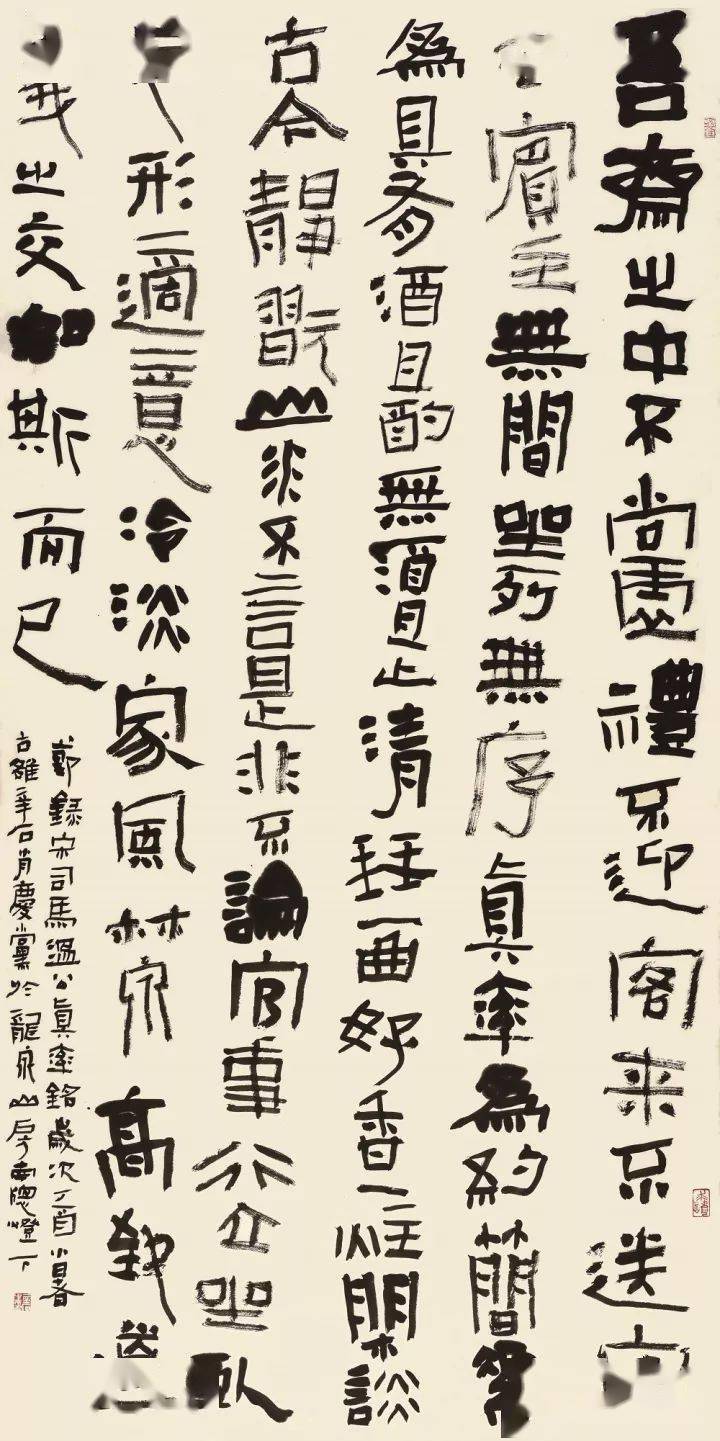 吾齋之中不尚虛禮不迎客來不送
賓主無間坐列無序真率為約簡素
為具有酒且酌無酒且止清琴一曲好香一炷閑談
古今靜玩山水不言是非不論官事行立坐臥
形適意冷淡家風林泉高致
義之交如斯而已
錄宋司馬溫公真率銘歲次丁酉小暑
古雒辛石肖慶黨於龍泉山房南窗燈下